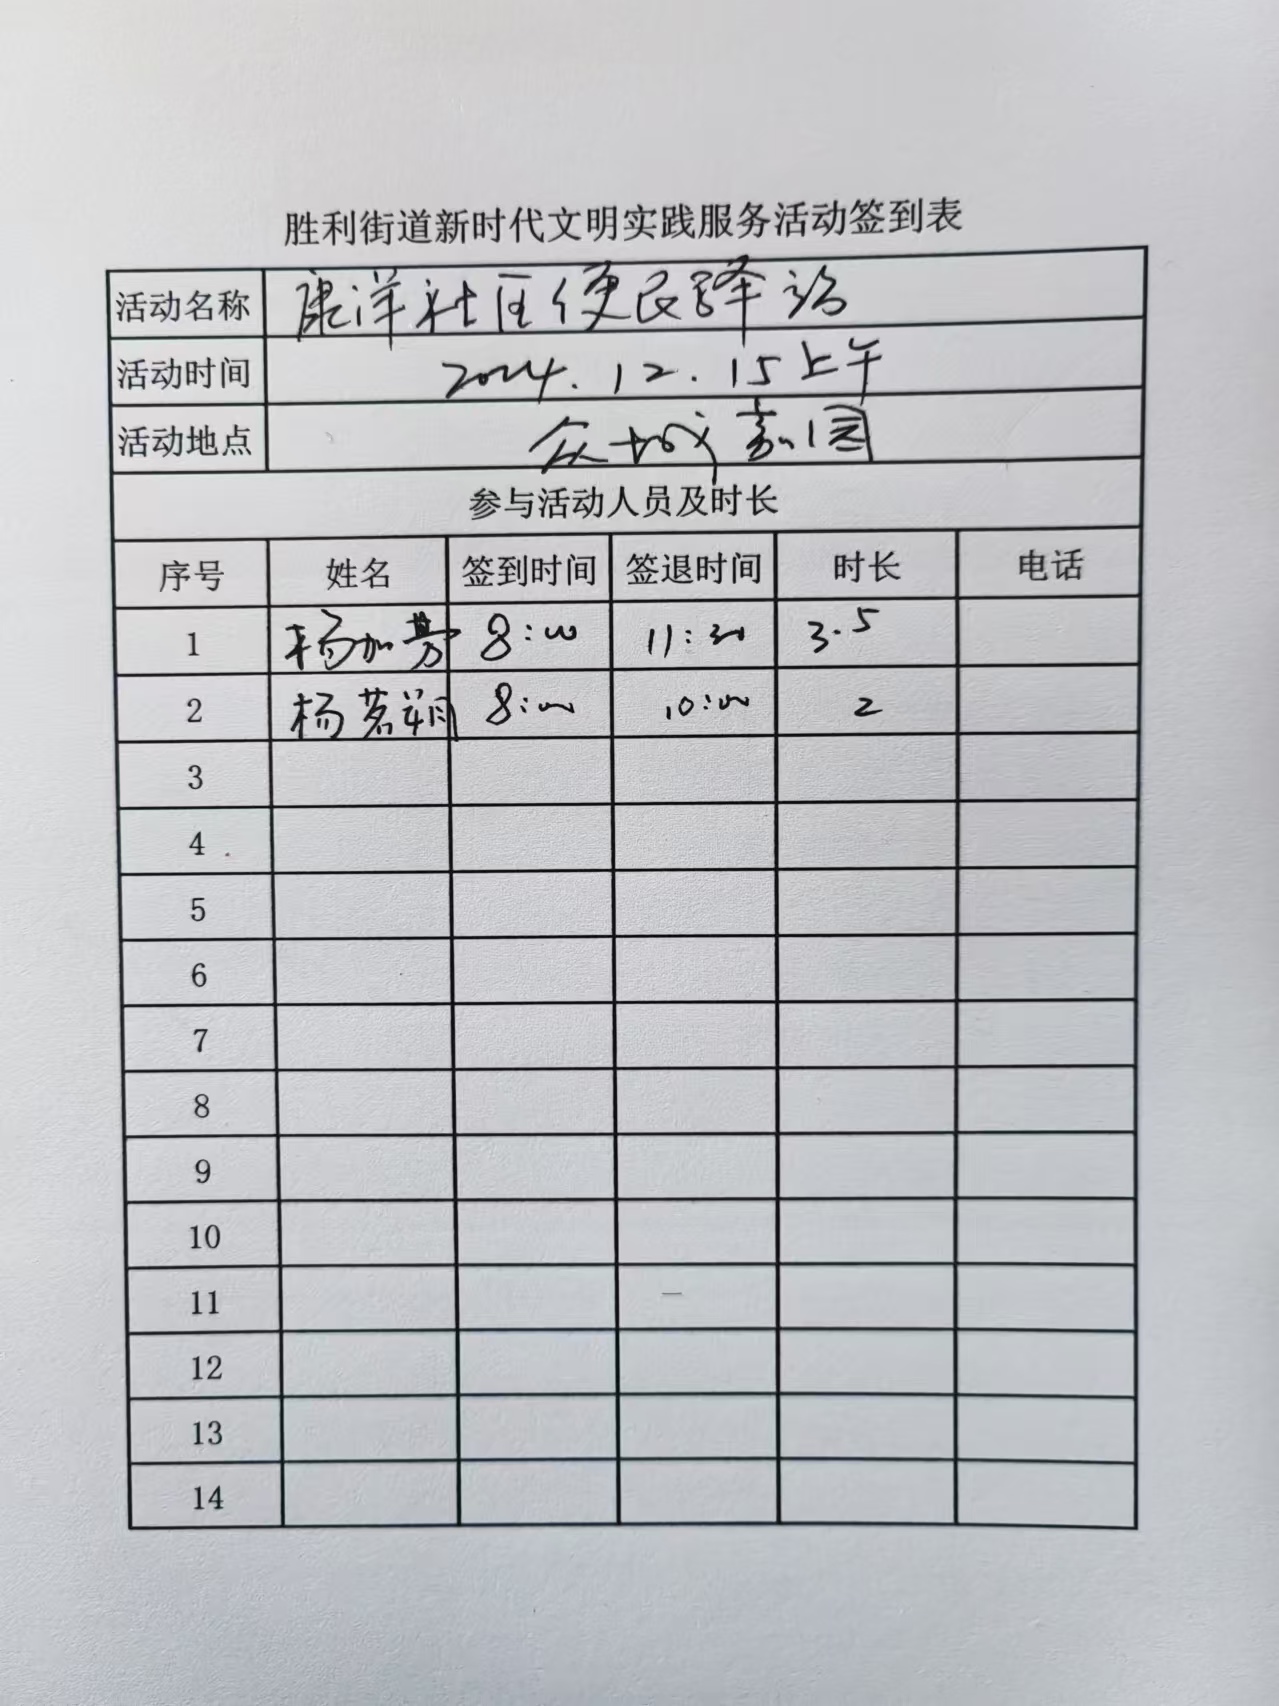 胜利街道新时代文明实践服务活动签到表
活动名称 康洋社区便民驿站
活动时间 2024.12.15上午
活动地点 众城嘉园
参与活动人员及时长
序号 姓名 签到时间 签退时间 时长 电话
1 杨加芳 8:00 11:30 3.5
2 杨茗翔 8:00 10:00 2
3
4
5
6
7
8
9
10
11
12
13
14